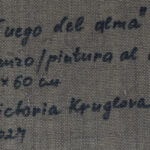 uego del alma"
nzo/pintura al
× 60 cm
ictoria Kruglova
024